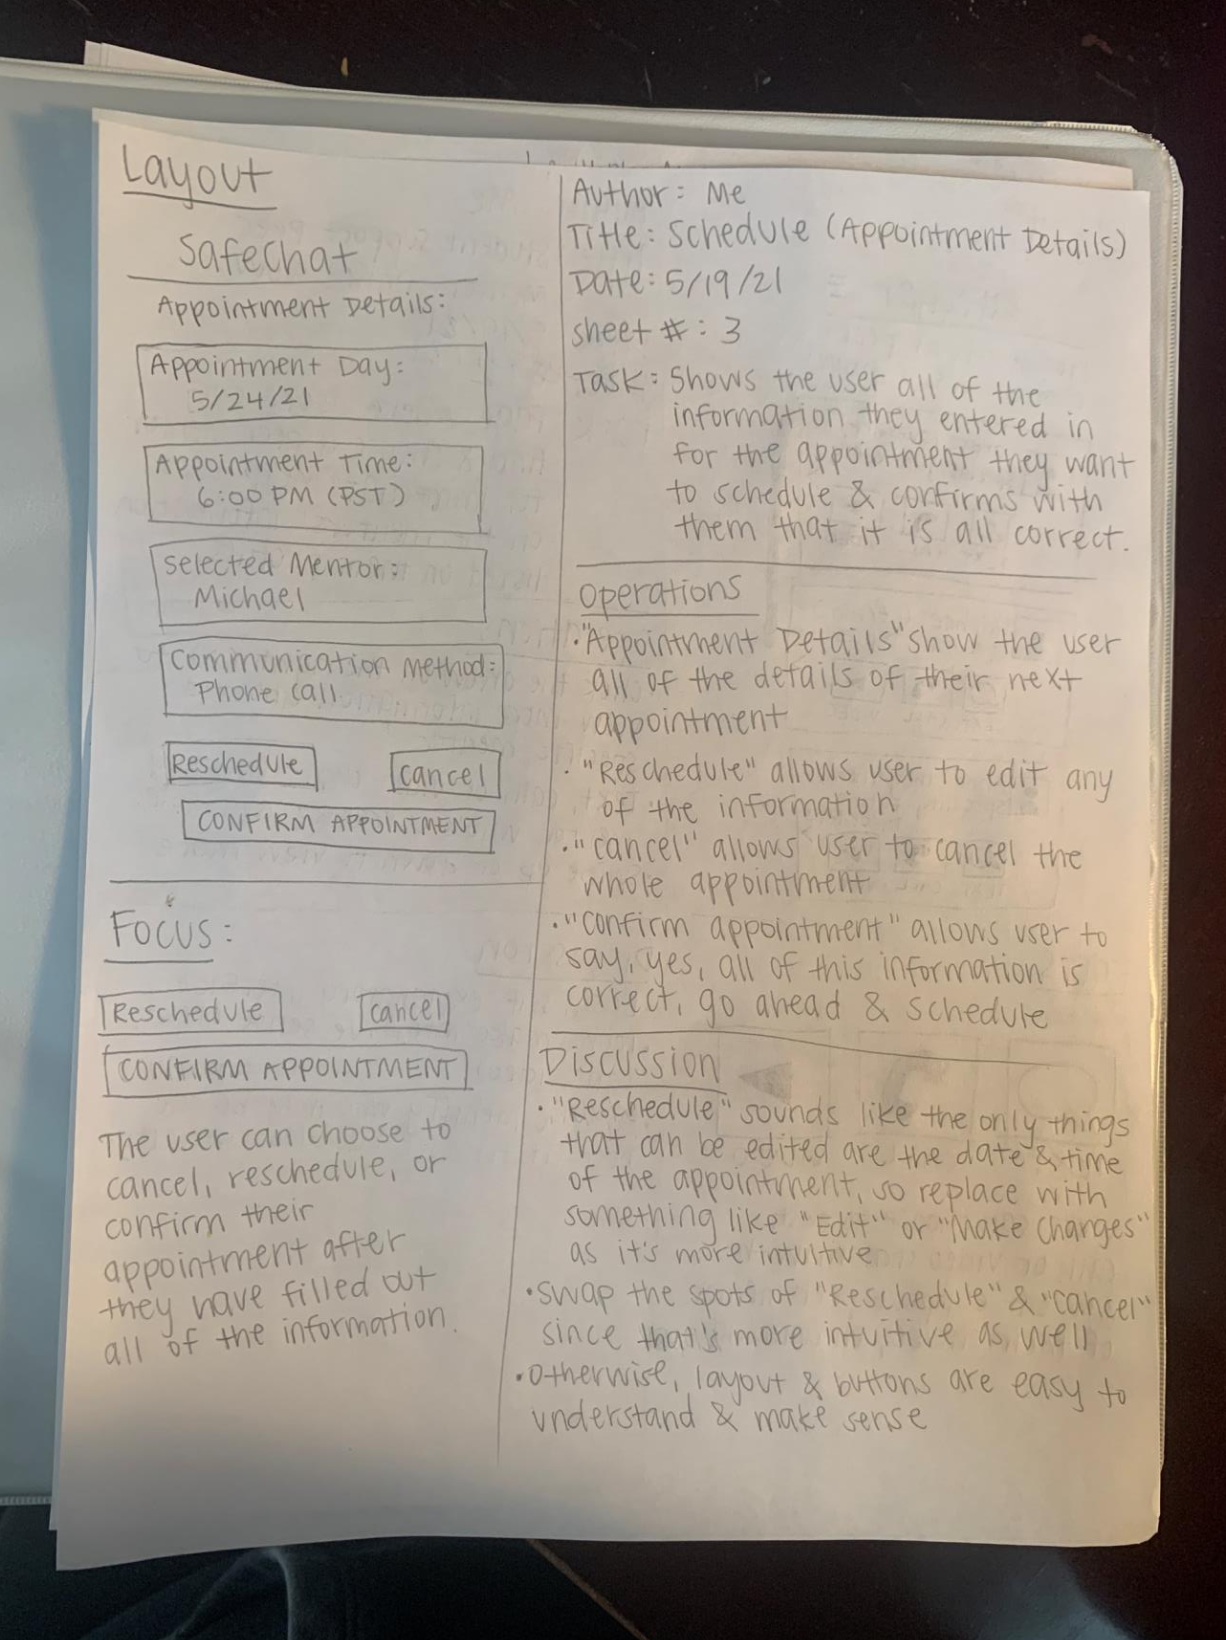 Layout
SafeChat
Appointment Details:
Appointment Day:
5/24/21
Appointment Time:
6:00 PM (PST)
Selected Mentor:
Michael
Communication Method:
Phone call
Reschedule
Cancel
CONFIRM APPOINTMENT
Focus:
Reschedule
Cancel
CONFIRM APPOINTMENT
The user can choose to
cancel, reschedule, or
confirm their
appointment after
they have filled out
all of the information.
Author: Me
Title: Schedule (Appointment Details)
Date: 5/19/21
Sheet #: 3
Task: Shows the user all of the
information they entered in
for the appointment they want
to schedule & confirms with
them that it is all correct.
Operations
• "Appointment Details" show the user
all of the details of their next
appointment
• "Reschedule" allows user to edit any
of the information
• "Cancel" allows user to cancel the
whole appointment
• "Confirm appointment" allows user to
say, yes, all of this information is
correct, go ahead & schedule
Discussion
• "Reschedule" sounds like the only things
that can be edited are the date & time
of the appointment, so replace with
something like "Edit" or "Make Changes"
as it's more intuitive
• Swap the spots of "Reschedule" & "Cancel"
since that's more intuitive as well
• Otherwise, layout & buttons are easy to
understand & make sense